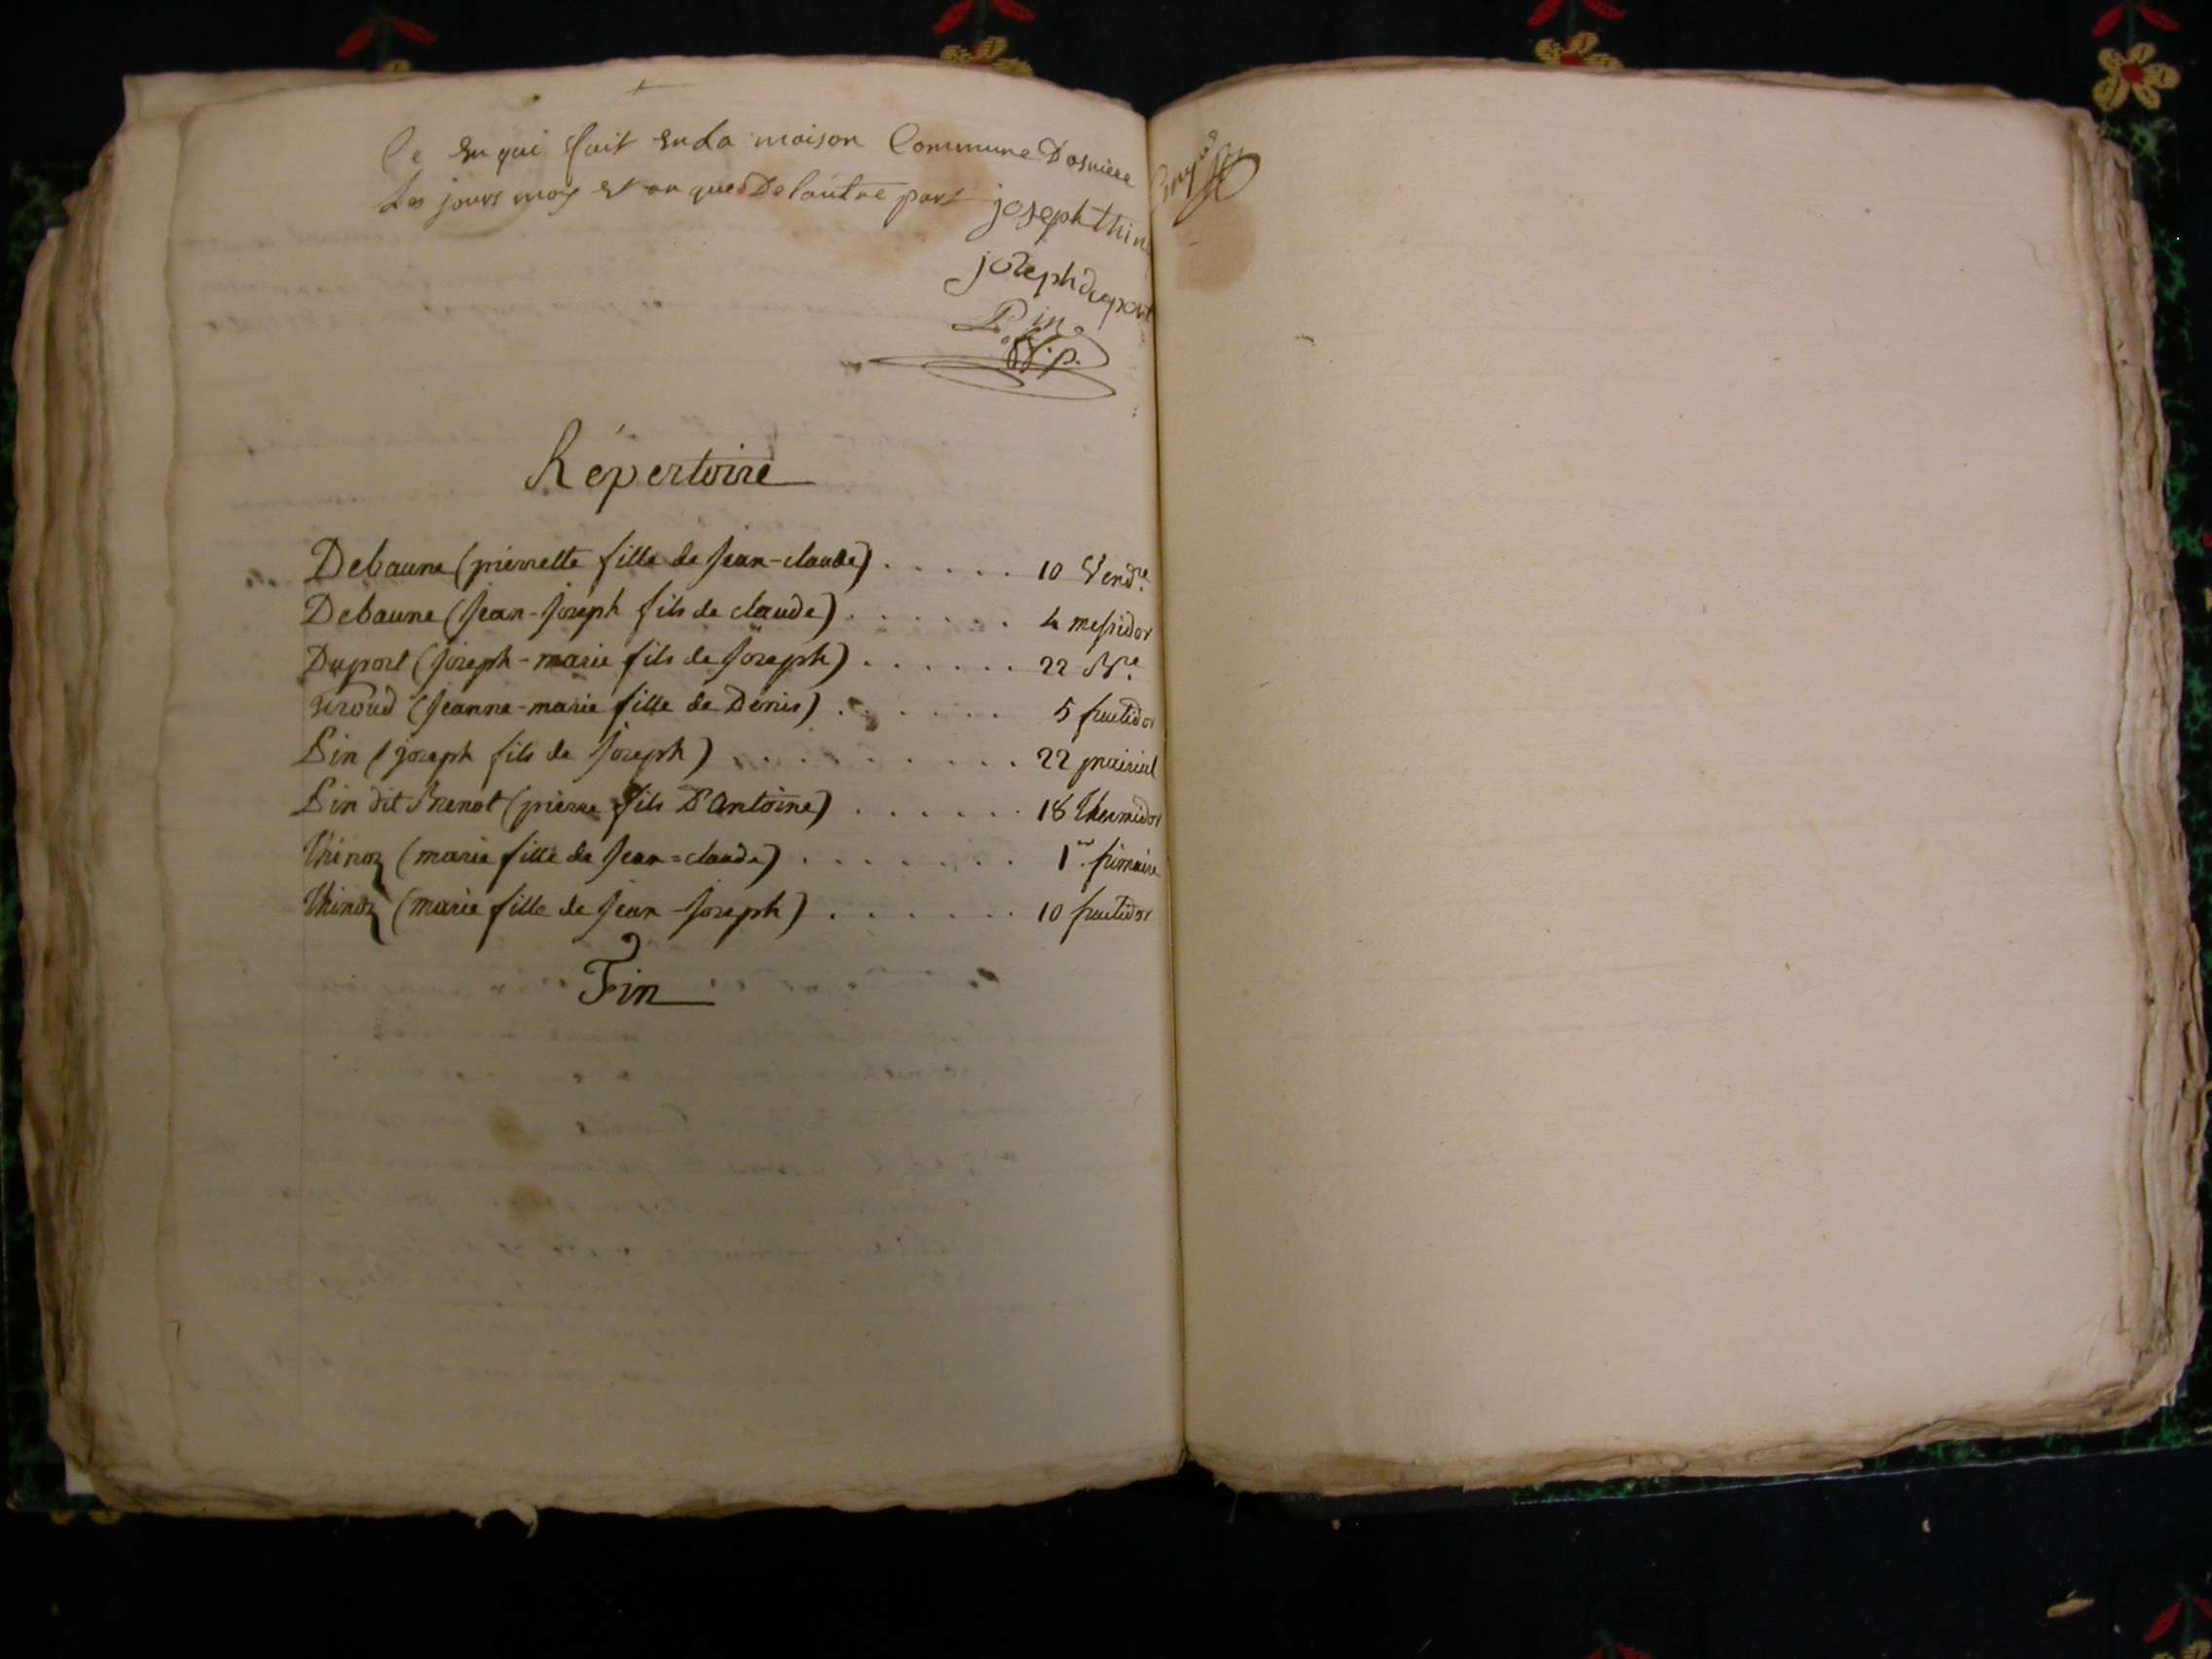 Ce En qui fait En La maison Commune Dasniere
Les jours mois Et an que De lautre part
joseph thin
joseph duport
Pin
Répertoire
Debaune (pierrette fille de Jean-claude) ..... 10 Vendre.
Debaune (Jean-Joseph fils de claude) ...... 4 messidor
Duport (Joseph-marie fils de Joseph) ...... 22
Giroud (Jeanne-marie fille de Denis) ...... 5 fructidor
Pin (joseph fils de Joseph) ......... 22 prairial
Pin dit Brenot (pierre fils D'Antoine) ...... 18 thermidor
Thinoz (marie fille de Jean=claude) ....... 1er. frimaire
Thinoz (marie fille de Jean-Joseph) ...... 10 fructidor
Fin